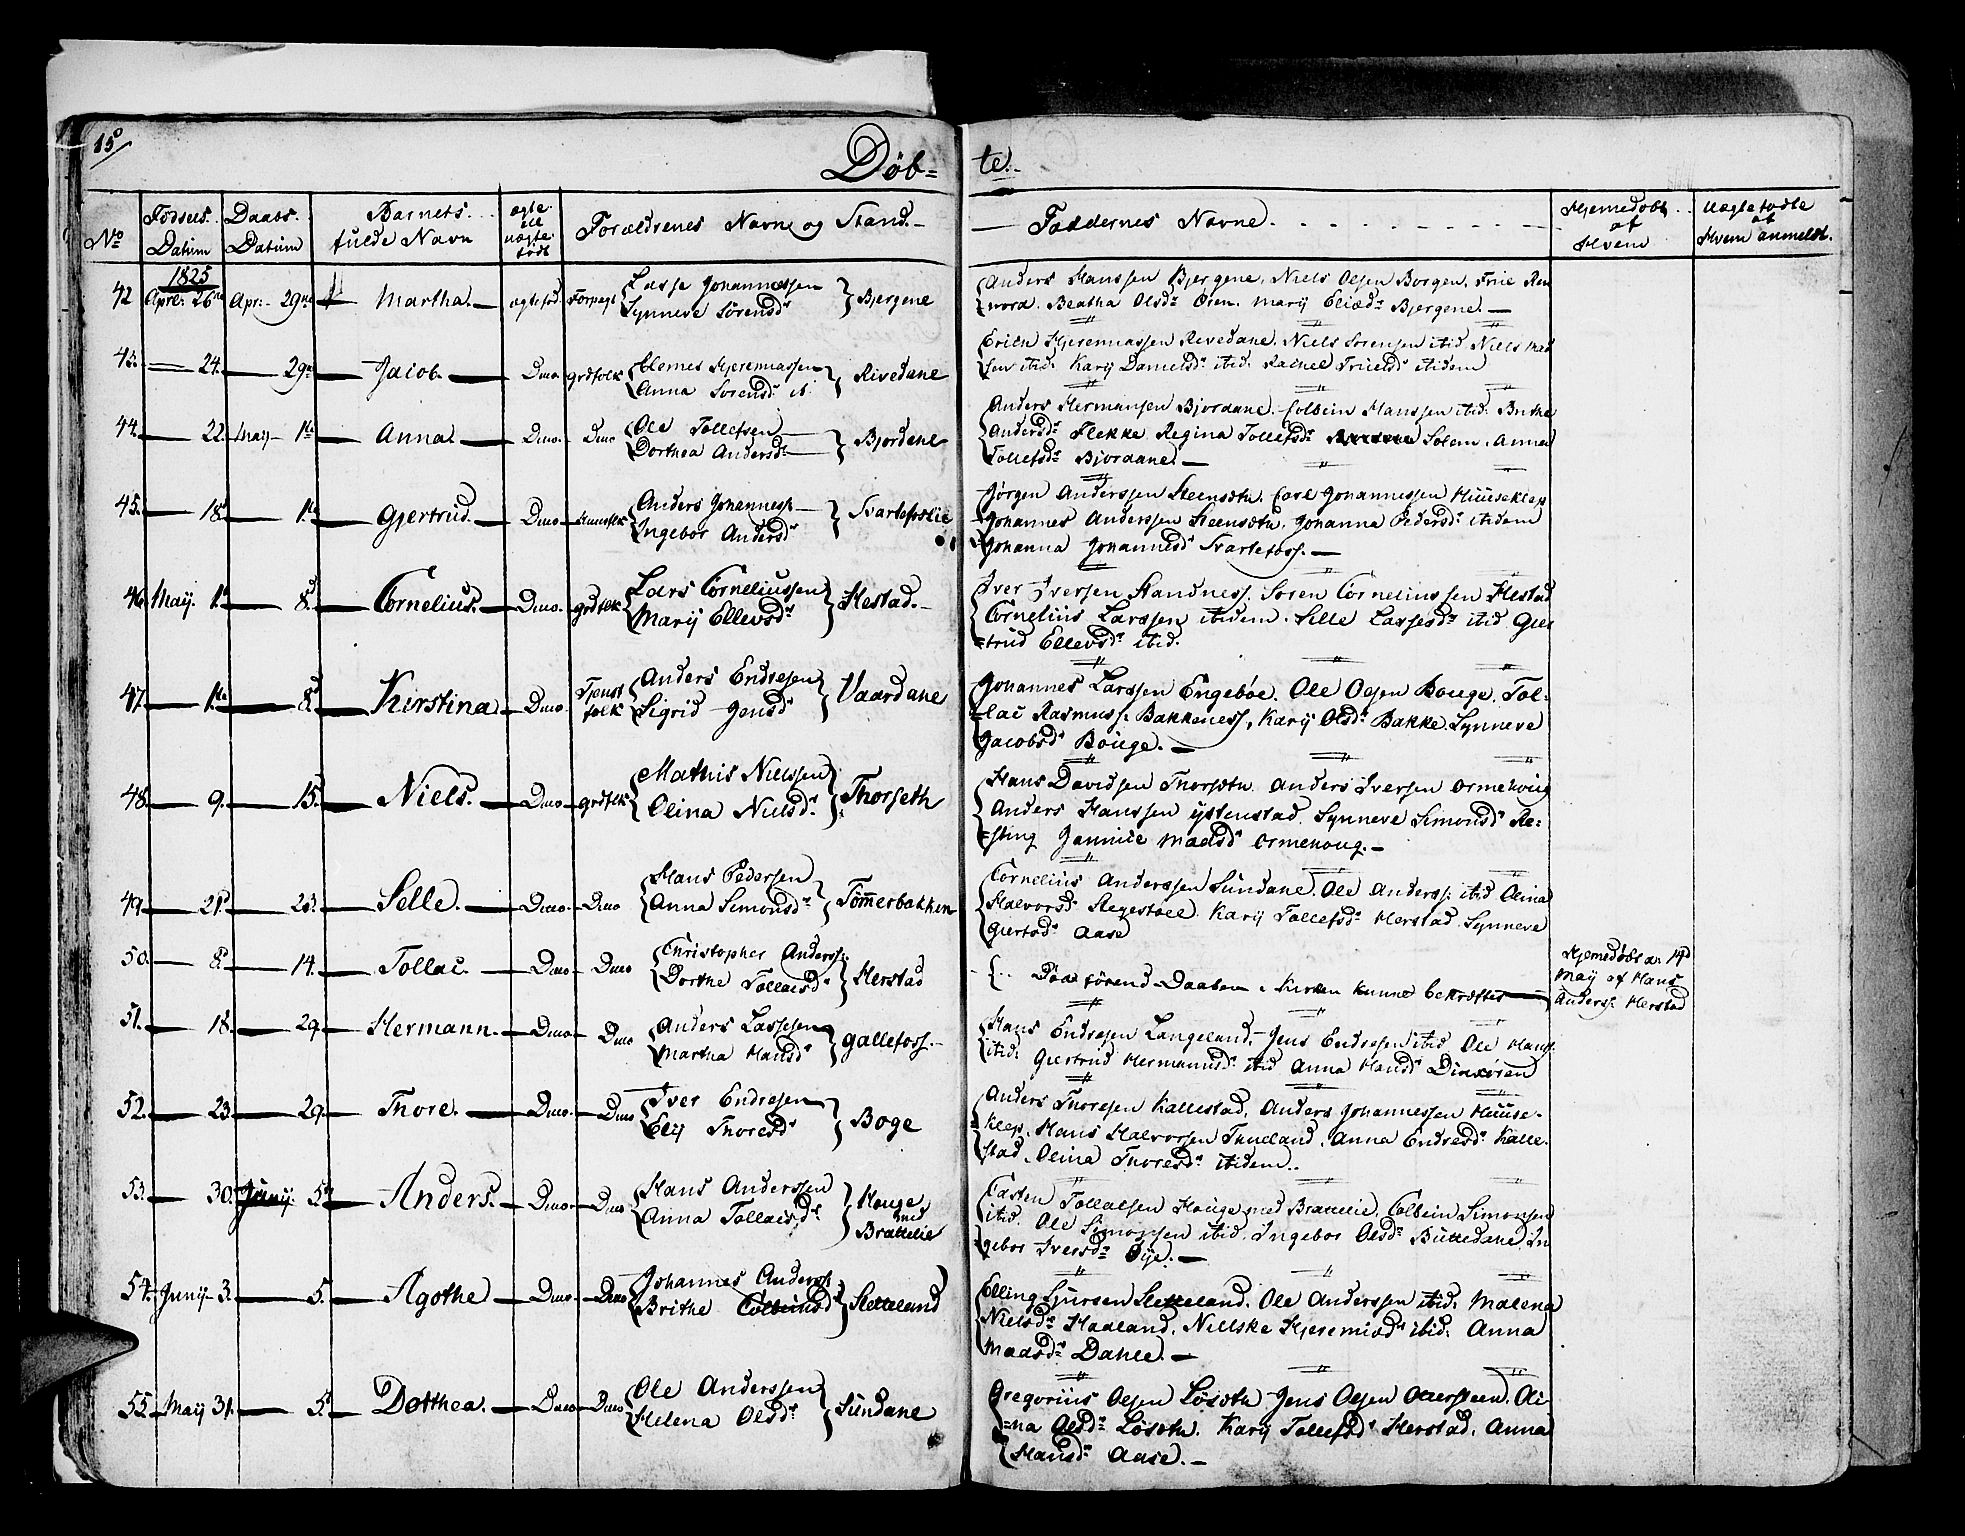 15
Døb= te.
No
Fødsels Datum
Daabs. Datum
Barnets. fulde Navn
ægte. ell uægte. født
Forældrenes Navn og Stand.
Faddernes Navne.
Hjemedøbt af Hvem
Uægtefødte af Hvem anmeldt.
1825
42 April 26 Apr: 29 Martha. ægtefød Forpagt Lasse Johannessen Synneve Sørensdr Bjergene
Anders Hanssen Bjergene, Niels Olsen Borgen,
Beatha Olsdr Øren. Mary Eliædr Bjergene.
43. 24. 29 Jacob. Duo grdfolk Clemes Hjeremiassen Anna Sorensdr Rivedane
Erich Hjeremiassen Revedane. Niels Sorensen itid Niels Mad
sen itid: Kary Danielsdr itid: Rachel itidem
44. 22. May 1te Anna. Duo. Duo Ole Tollefsen Dorthea Andersdr Bjordane
Anders Hermansen Bjordane. Colbein Hanssen itid: Brithe
Andersdr Flekke Regina Tollefsdr Solem. Anna
Tollefsdr Bjordane.
45. 18 1te Gjertrud. Duo Huusfolk Anders Johanness. Ingebor Andersdr
Jørgen Anderssen Steensæth. Carl Johannessen Huuseklep
Johannes Anderssen Steensæth. Johanna Pedersdr itidem
Johanna Johannesdr Svartefoss.
46. May. 1 8. Cornelius. Duo. grdfolk Lars Corneliussen Mary Ellevsdr Hestad.
Iver Iversen Standness. Soren Corneliussen Hestad
Cornelius Larssen itidem. Selle Lassesdr itid Gier
=trud Ellevsdr itid.
47. 1te 8. Kirstina Duo. Tjenst folk Anders Endresen Sigrid Jensdr Vaardane
Johannes Larssen Engebøe. Ole Olsen Bouge. Tol=
=lac Rasmuss. Bakkeness, Kary Olsdr Bakke. Synneve
Jacobsdr Bouge.
48. 9. 15. Niels. Duo grdfolk Mathis Nielssen Olina Nielsdr Thorseth
Hans Davidsen Thorseth. Anders Iversen Ormehoug
Anders Hanssen Ystenstad. Synneve Simonsdr Re=
=sting Jannice Madsdr Ormehoug.
49. 21 23. Selle. Duo. Duo Hans Pedersen Anna Simonsdr Tømmerbakken
Cornelius Anderssen Sundane. Ole Anderss. itid Olina
Halvorsdr Kary Tollefsdr Herstad Synneve
Giertsdr Aase
50. 8. 14. Tollac. Duo Duo Christopher Anderss. Dorthe Tollacsdr Herstad
Døde førend Daaben i Kirken kunne bekræftes
Hjemedøbt den 14d May af Hans Anderss. Herstad
51. 18. 29. Hermann. Duo. Duo Anders Lassesen Martha Hansdr Gallefoss.
Hans Endresen Langeland, Jens Endresen itid Ole Hanss.
itid: Giertrud Hermannsdr itid Anna Hansdr
52. 23 29. Thore. Duo. Duo Iver Endresen Ely Thoresdr Boge
Anders Thoresen Kallestad, Anders Johannessen Huuse=
klep, Hans Halvorsen Thueland, Anna Endresdr Kalle=
stad. Olina Thoresdr itidem.
53. 30. Juny. 5 Anders. Duo. Duo Hans Anderssen Anna Tollacsdr Houge med Brattelie
Casten Tollacsen Houge med Brattelie. Colbein Simonsen
itid. Ole Simonsen itid. Ingebor Olsdr In
gebor Iversdr Øye.
54. Juny 3. 5. Agothe Duo. Duo Johannes Anderss. Brithe Colbeinsdr Sletteland
Elling Sjursen Sletteland. Ole Anderssen itid: Malena
Nielsdr Haaland, Nillske Hjeremiædr itid: Anna
Madsdr Dahle.
55 May 31. 5. Dorthea. Duo Duo Ole Anderssen Helena Olsdr Sundane
Gregorius Olsen Løsæth Jens Olsen Ottersteen. Oli=
=na Olsdr Løsæth. Kary Tollefsdr Herstad. Anna
Hansdr Aase.